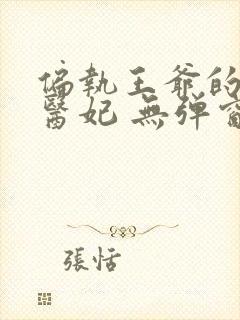 偏執王爺的
醫妃 無弹窗
張恬